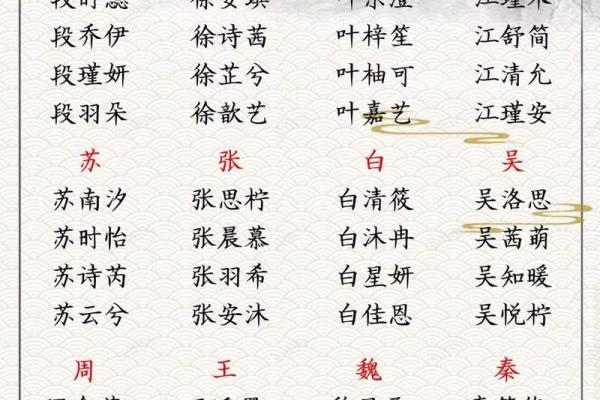 段乔伊 徐诗茜 叶梓笙 江舒简
段瑾妍 徐芷兮 叶柚可 江清允
段羽朵 徐歆艺 叶嘉艺 江瑾安
苏 张 白 吴
苏南汐 张思柠 白清筱 吴洛思
苏时怡 张晨慕 白沐冉 吴茜萌
苏诗芮 张羽希 白星妍 吴知暖
苏云兮 张安沐 白佳恩 吴悦柠
周 王 魏 秦